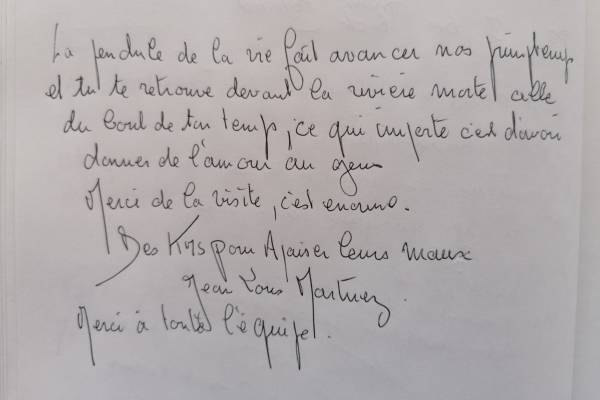 La pendule de la vie fait avancer nos printemp
et tu te retrouve devant la rivière mortel celle
du bout de ton temp, ce qui importe c'est d'avoir
donner de l'amour au gens
Merci de la visite, c'est enorme.
Des Kms pour Apaiser leurs maux
Jean Louis Martinez.
Merci à toute l'équipe.